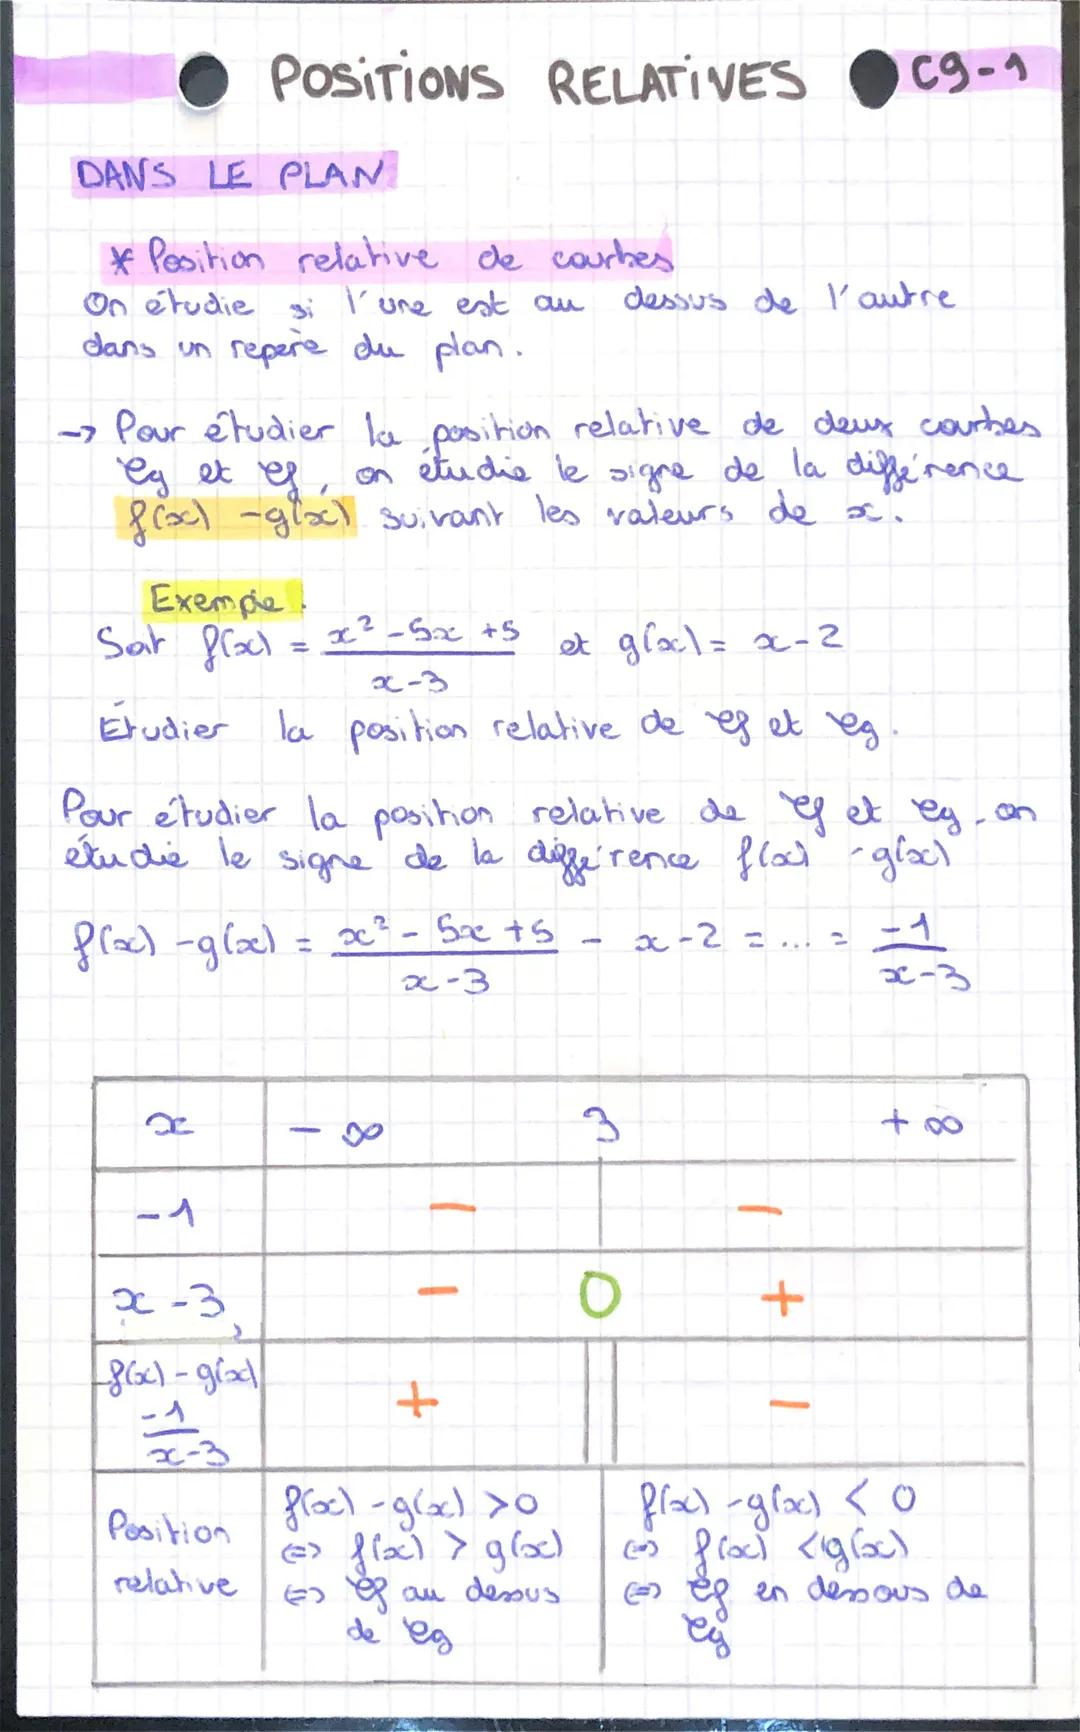 POSITIONS RELATIVES C9-1
DANS LE PLAN
* Position relative de courbes
On étudie si l'une est au dessus de l'autre
dans un repère du plan.
→ Pour étudier la position relative de deux courbes
Cg et Cf, on étudie le signe de la différence
f(x) - g(x) suivant les valeurs de x.
Exemple.
Soit f(x) = (x² - 5x + 5)/(x - 3) et g(x) = x - 2
Étudier la position relative de Cf et Cg.
Pour étudier la position relative de Cf et Cg, on
étudie le signe de la différence f(x) - g(x)
f(x) - g(x) = (x² - 5x + 5)/(x - 3) - x - 2 = ... = -1/(x - 3)
x - ∞ 3 + ∞
-1 - -
x - 3 - 0 +
f(x) - g(x)
-1/(x - 3) + || -
Position relative
f(x) - g(x) > 0
⇔ f(x) > g(x)
⇔ Cf au dessus
de Cg
f(x) - g(x) < 0
⇔ f(x) < g(x)
⇔ Cf en dessous de
Cg